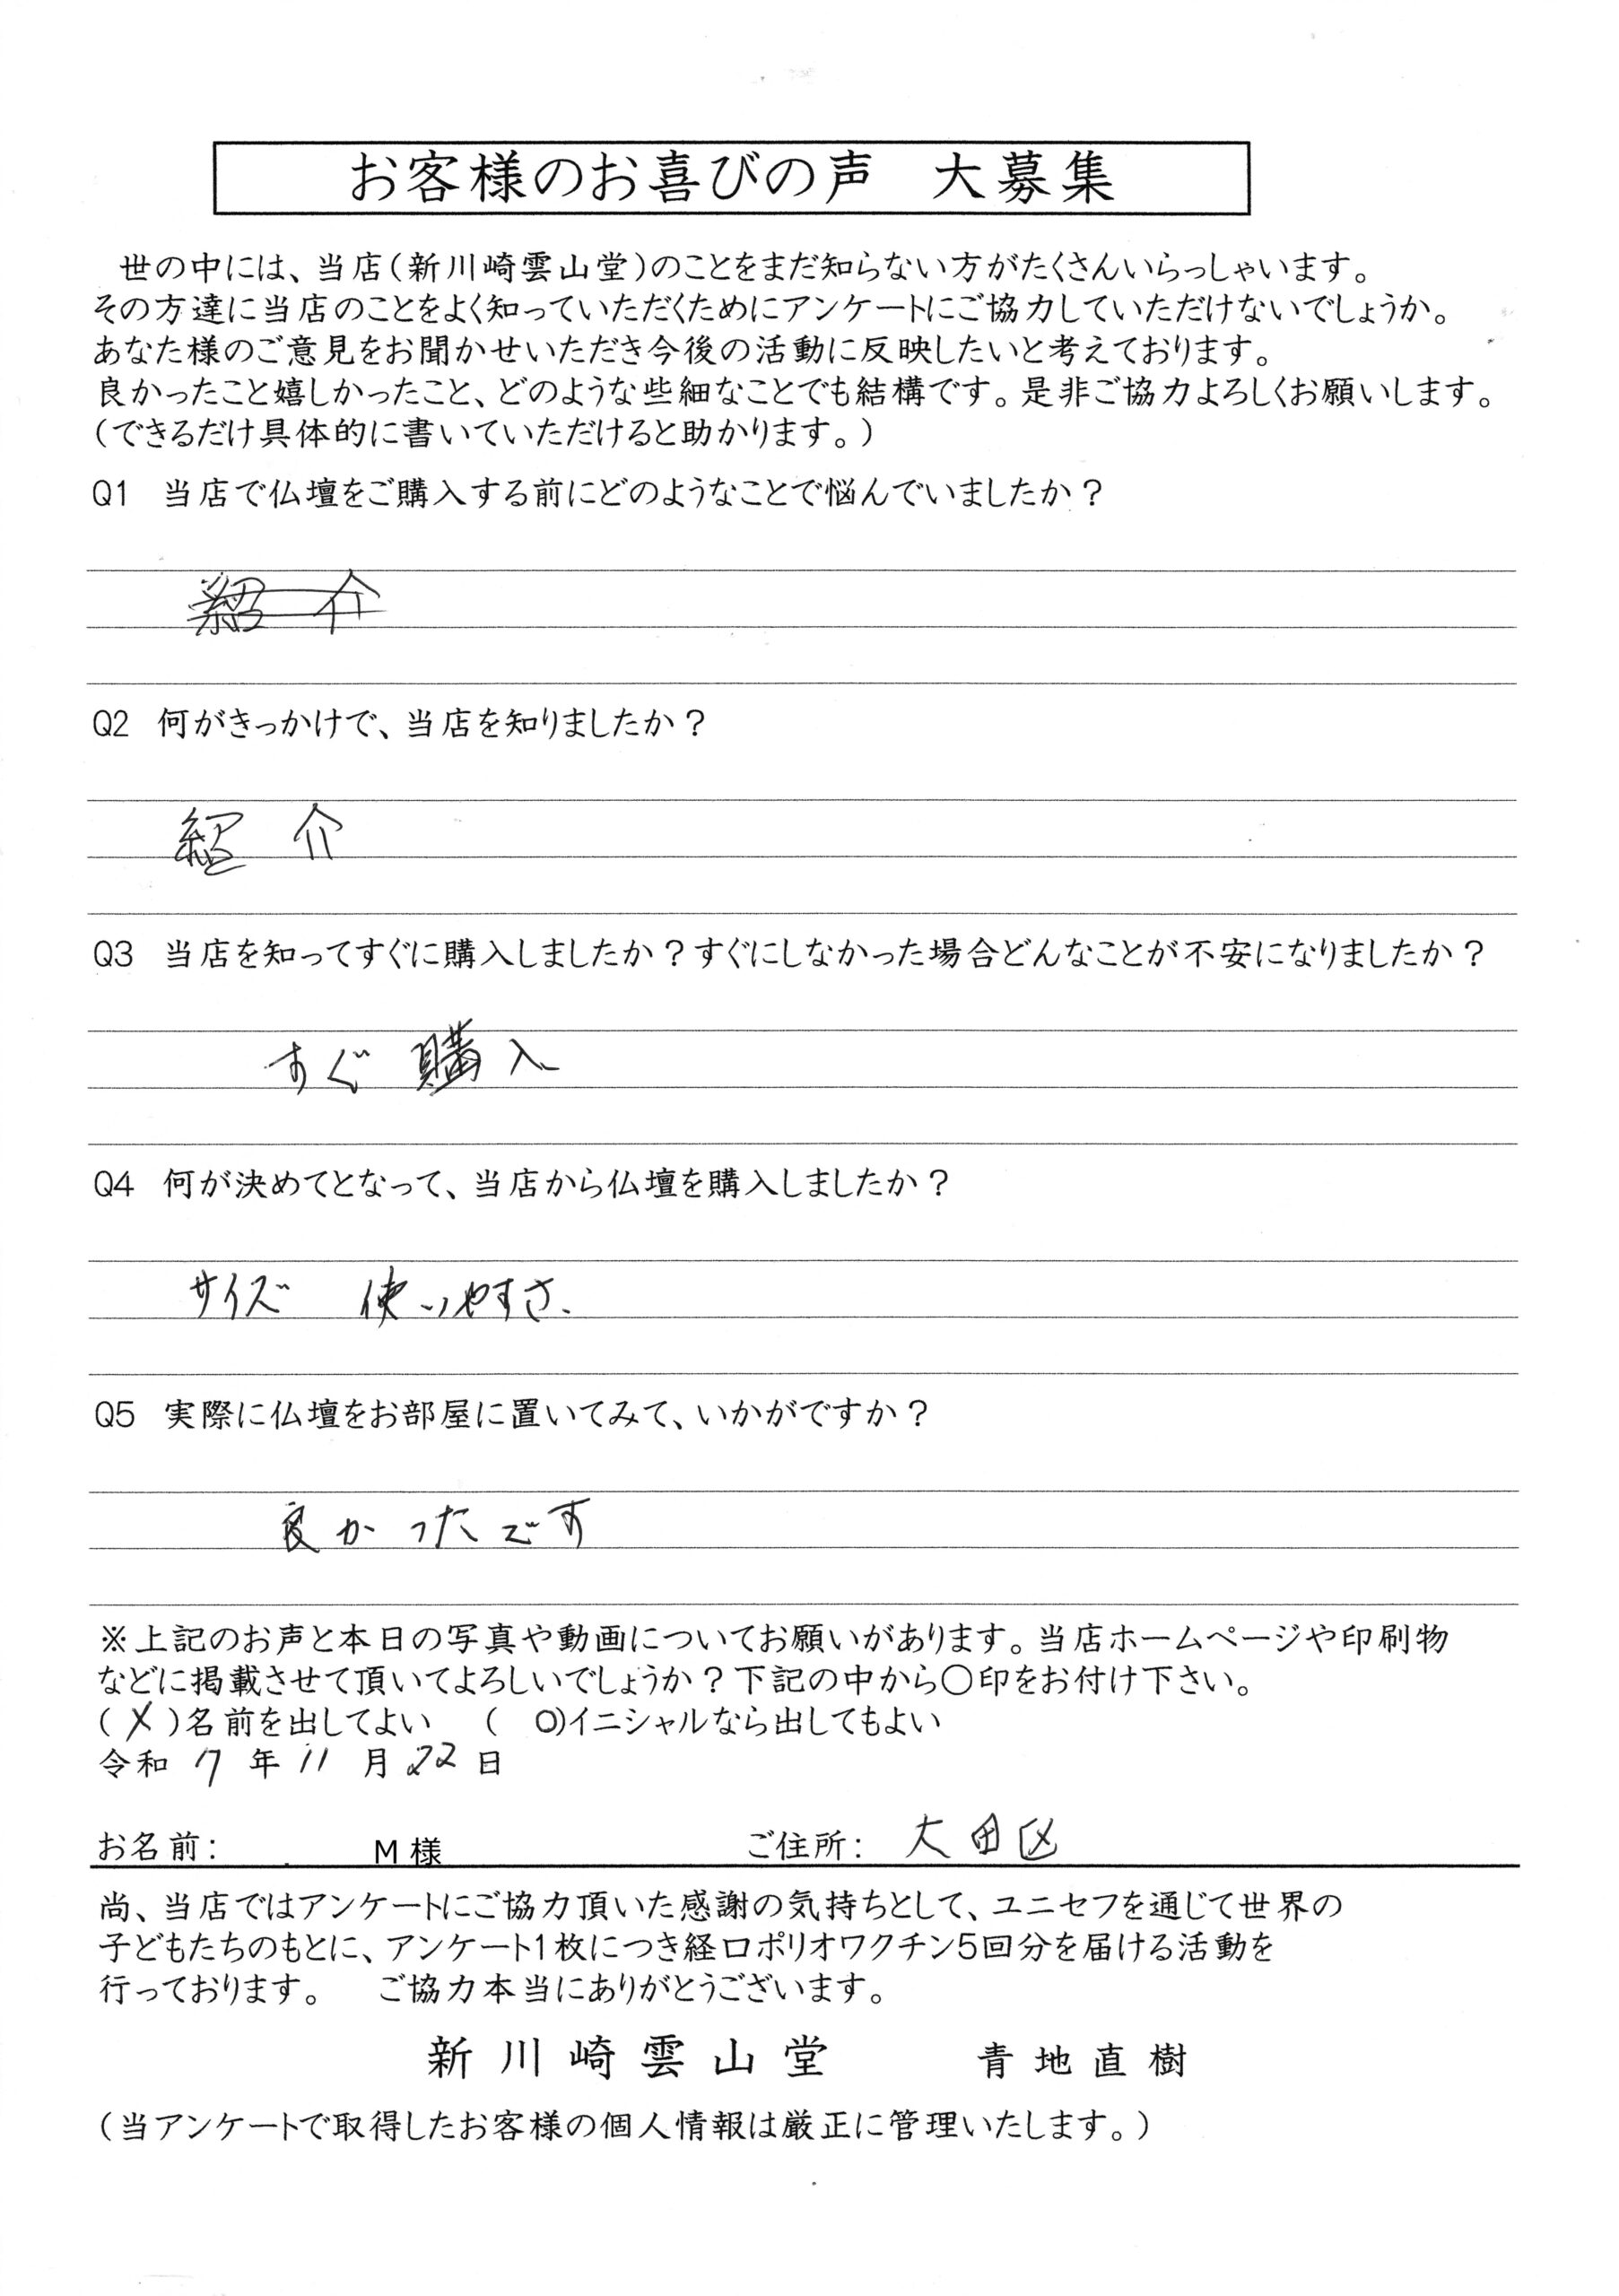 お客様のお喜びの声　大募集
世の中には、当店（新川崎雲山堂）のことをまだ知らない方がたくさんいらっしゃいます。
その方達に当店のことをよく知っていただくためにアンケートにご協力していただけないでしょうか。
あなた様のご意見をお聞かせいただき今後の活動に反映したいと考えております。
良かったこと嬉しかったこと、どのような些細なことでも結構です。是非ご協力よろしくお願いします。
（できるだけ具体的に書いていただけると助かります。）
Q1　当店で仏壇をご購入する前にどのようなことで悩んでいましたか？
紹介
Q2　何がきっかけで、当店を知りましたか？
紹介
Q3　当店を知ってすぐに購入しましたか？すぐにしなかった場合どんなことが不安になりましたか？
すぐ購入
Q4　何が決めてとなって、当店から仏壇を購入しましたか？
サイズ　使いやすさ、
Q5　実際に仏壇をお部屋に置いてみて、いかがですか？
良かったです
※上記のお声と本日の写真や動画についてお願いがあります。当店ホームページや印刷物
などに掲載させて頂いてよろしいでしょうか？下記の中から〇印をお付け下さい。
（ × ）名前を出してよい　（　〇）イニシャルなら出してもよい
令和 7 年 11 月 22 日
お名前：　M 様　ご住所：　大田区
尚、当店ではアンケートにご協力頂いた感謝の気持ちとして、ユニセフを通じて世界の
子どもたちのもとに、アンケート1枚につき経口ポリオワクチン5回分を届ける活動を
行っております。　ご協力本当にありがとうございます。
新川崎雲山堂　青地直樹
（当アンケートで取得したお客様の個人情報は厳正に管理いたします。）